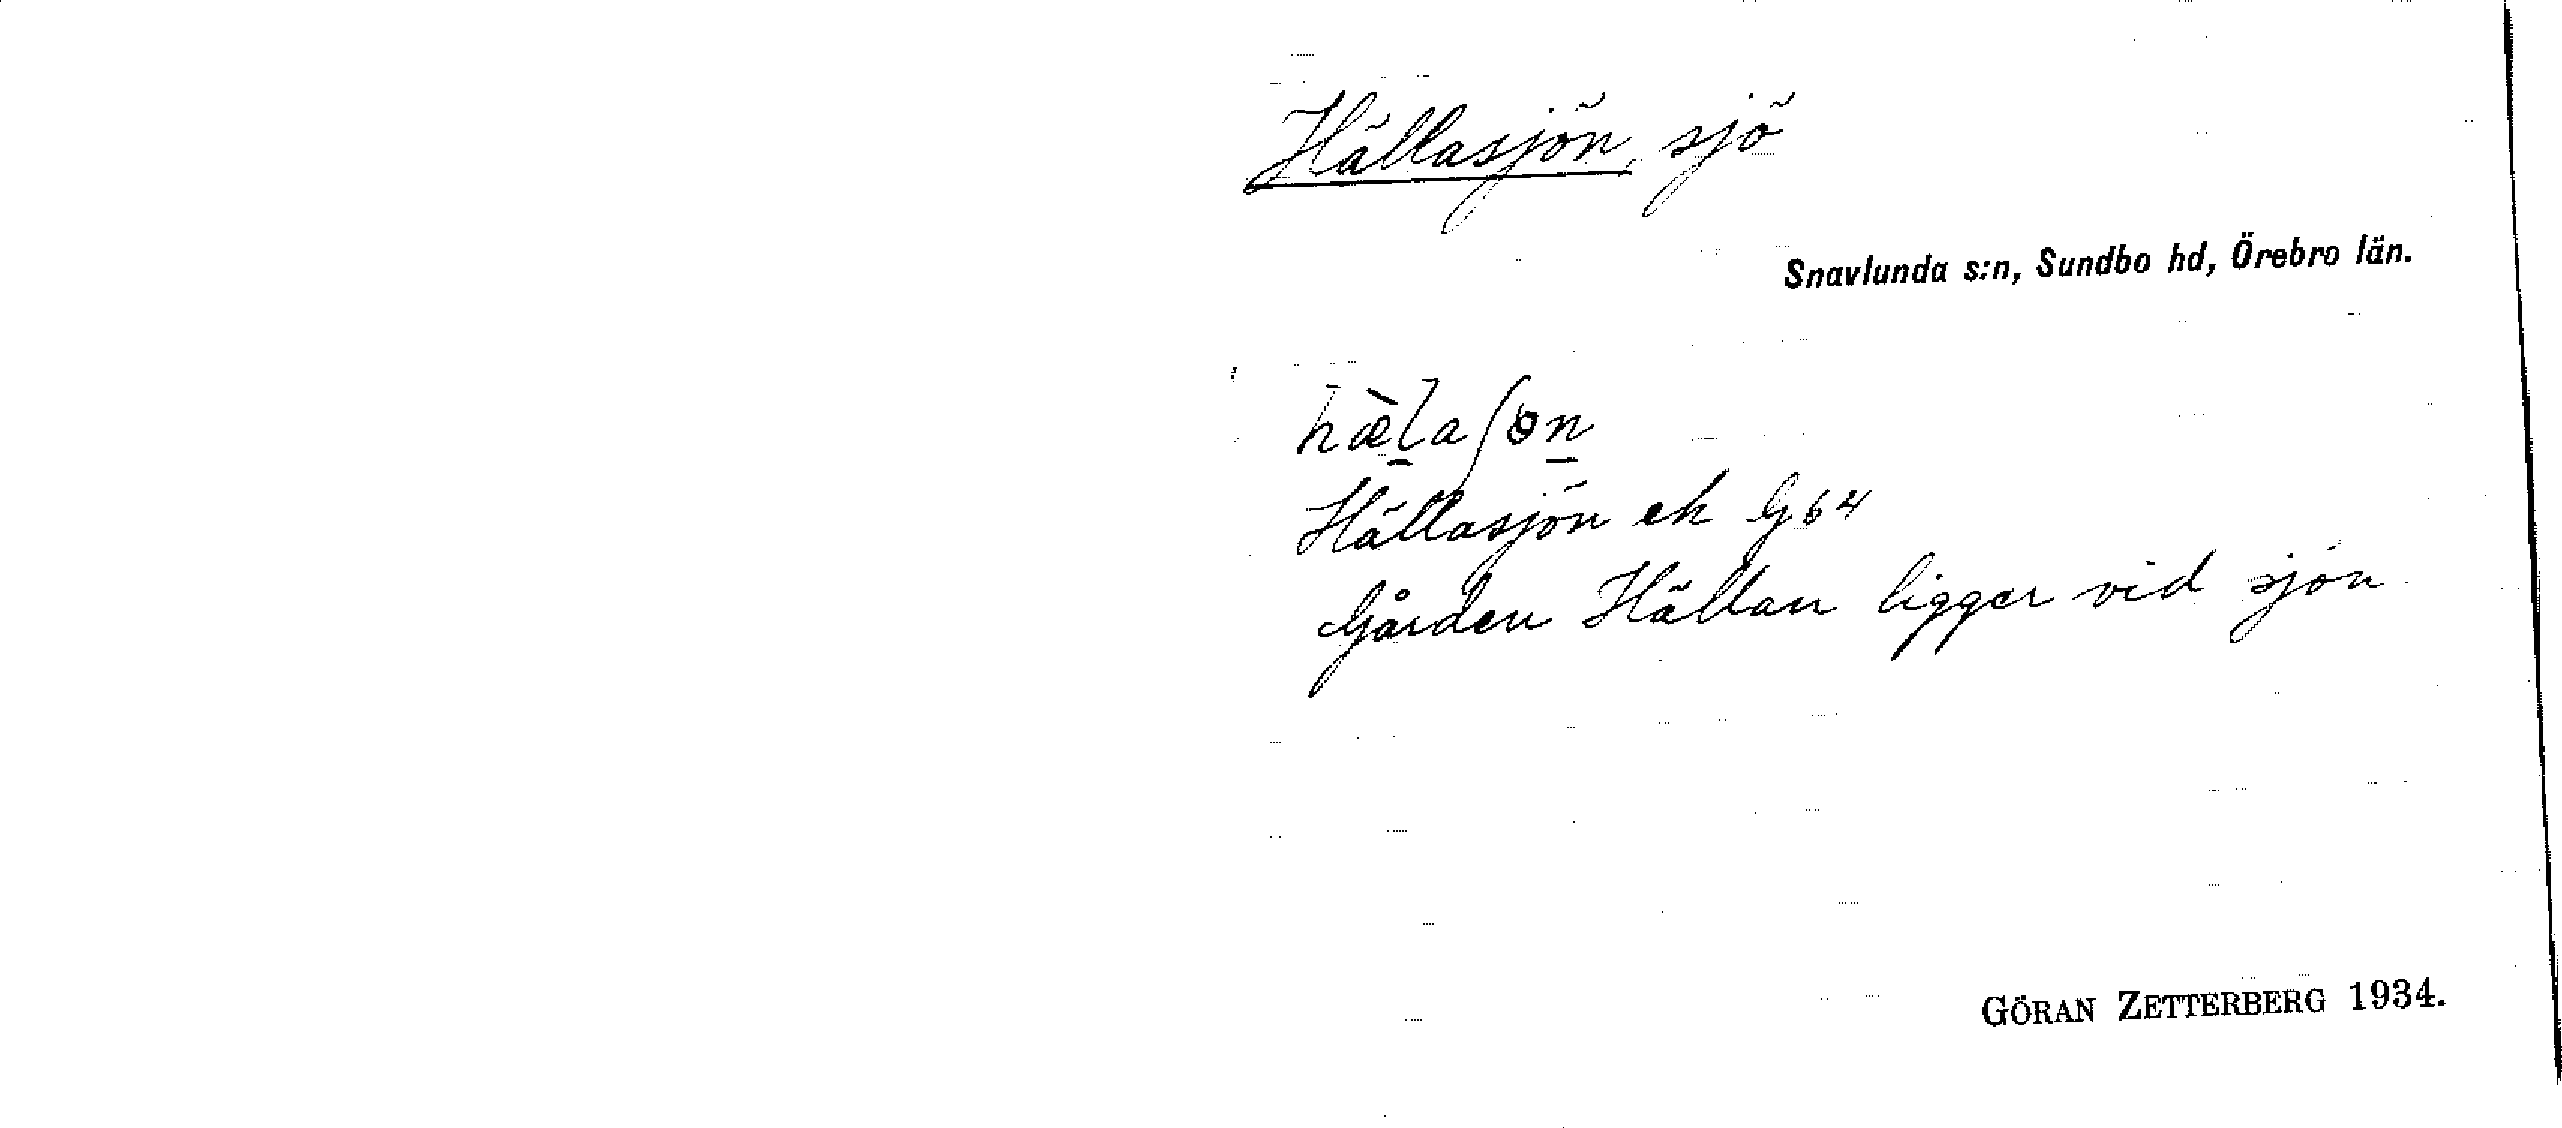 Hällasjön, sjö
Snavlunda s:n, Sundbo hd, Örebro län.
hæ̀l̠aʃɵn̠
Hällasjön ek G64
Gården Hällan ligger vid sjön
GÖRAN ZETTERBERG 1934.